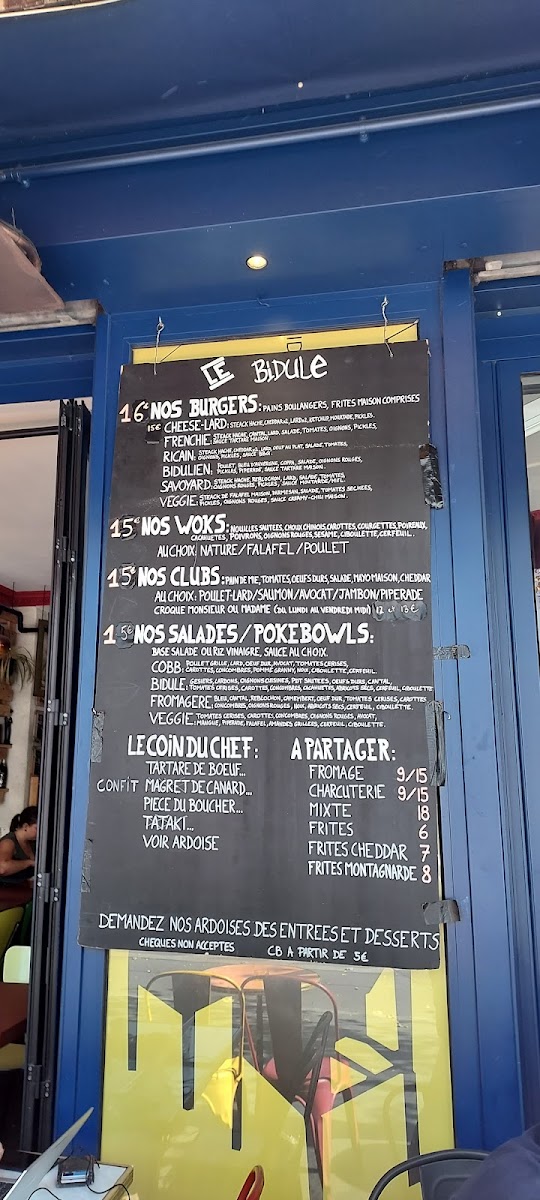 LE BIDULE
16€ NOS BURGERS: PAINS BOULANGERS, FRITES MAISON COMPRISES
15€ CHEESE-LARD: STEACK HACHE, CHEDDAR x2, LARD x2, KETCHUP, MOUTARDE, PICKLES.
FRENCHIE: STEACK HACHE, CANTAL, LARD, SALADE, TOMATES, OIGNONS, PICKLES,
SAUCE TARTARE MAISON.
RICAIN: STEACK HACHE, CHEDDAR, LARD, OEUF AU PLAT, SALADE, TOMATES,
OIGNONS, PICKLES, SAUCE BBQ
BIDULIEN: POULET, BLEU D'AUVERGNE, COPPA, SALADE, OIGNONS ROUGES,
PICKLES, PIPERADE, SAUCE TARTARE MAISON.
SAVOYARD: STEACK HACHE, REBLOCHON, LARD, SALADE, TOMATES,
OIGNONS ROUGES, PICKLES, SAUCE MOUTARDE/MIEL.
VEGGIE: STEACK DE FALAFEL MAISON, PARMESAN, SALADE, TOMATES SECHEES,
PICKLES, OIGNONS ROUGES, SAUCE CREAMY-CHILI MAISON.
15€ NOS WOKS: NOUILLES SAUTEES, CHOUX CHINOIS, CAROTTES, COURGETTES, POIREAUX,
CACAHUETES, POIVRONS, OIGNONS ROUGES, SESAME, CIBOULETTE, CERFEUIL.
AU CHOIX: NATURE/FALAFEL/POULET
15€ NOS CLUBS: PAIN DE MIE, TOMATES, OEUFS DURS, SALADE, MAYO MAISON, CHEDDAR
AU CHOIX: POULET-LARD/SAUMON/AVOCAT/JAMBON/PIPERADE
CROQUE MONSIEUR OU MADAME (DU LUNDI AU VENDREDI MIDI) 12 et 13€
15€ NOS SALADES/POKEBOWLS:
BASE SALADE OU RIZ VINAIGRE, SAUCE AU CHOIX.
COBB: POULET GRILLE, LARD, OEUF DUR, AVOCAT, TOMATES CERISES,
CAROTTES, CONCOMBRES, POMME GRANNY, NOIX, CIBOULETTE, CERFEUIL.
BIDULE: GESIERS, LARDONS, OIGNONS CUISINES, PDT SAUTEES, OEUFS DURS, CANTAL,
TOMATES CERISES, CAROTTES, CONCOMBRES, CACAHUETES, ABRICOTS SECS, CERFEUIL, CIBOULETTE
FROMAGERE: BLEU, CANTAL, REBLOCHON, CAMEMBERT, OEUF DUR, TOMATES CERISES, CAROTTES
CONCOMBRES, OIGNONS ROUGES, NOIX, ABRICOTS SECS, CERFEUIL, CIBOULETTE.
VEGGIE: TOMATES CERISES, CAROTTES, CONCOMBRES, OIGNONS ROUGES, AVOCAT,
MANGUE, PIPERADE, FALAFEL, AMANDES GRILLEES, CERFEUIL, CIBOULETTE.
LE COIN DU CHEF:
TARTARE DE BOEUF...
CONFIT MAGRET DE CANARD...
PIECE DU BOUCHER...
TATAKI...
VOIR ARDOISE
A PARTAGER:
FROMAGE 9/15
CHARCUTERIE 9/15
MIXTE 18
FRITES 6
FRITES CHEDDAR 7
FRITES MONTAGNARDE 8
DEMANDEZ NOS ARDOISES DES ENTREES ET DESSERTS
CHEQUES NON ACCEPTES CB A PARTIR DE 5€